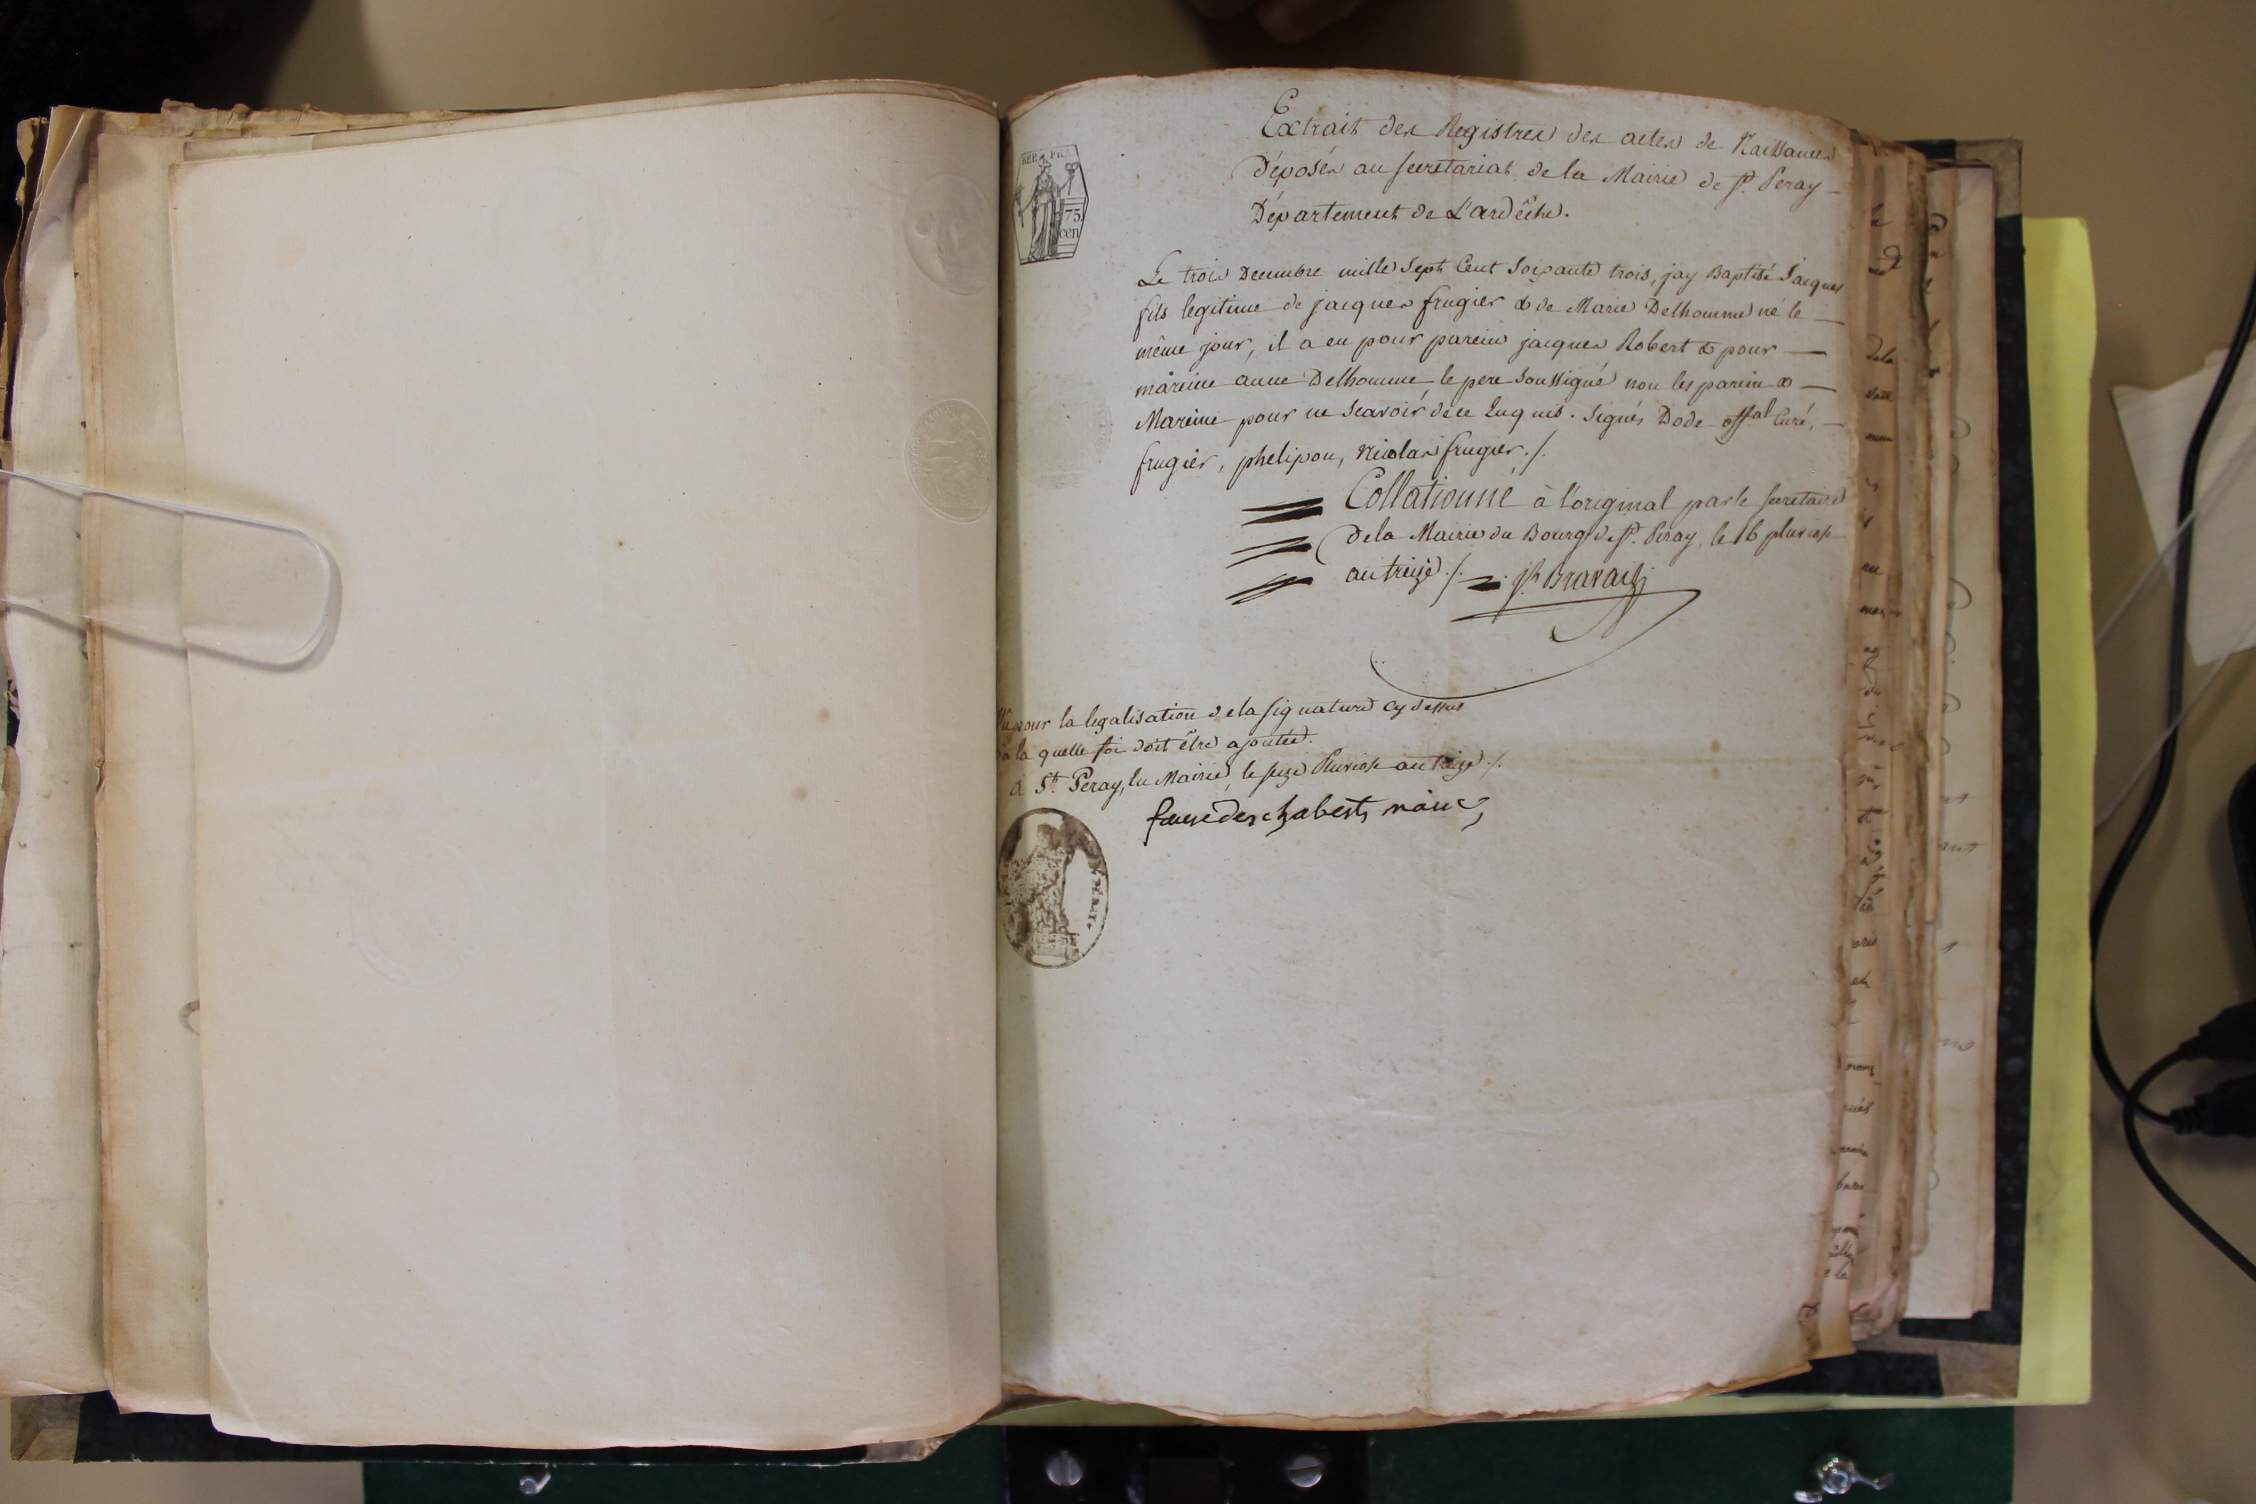 Extrait des Registres des actes de Naissances
déposés au secretariat de la Mairie de St. Peray
Département de L'ardêche.
REP. FRA.
75
cen
Le trois Decembre mille Sept Cent Soixante trois, jay Baptisé Jacques
fils legitime de jacques frugier & de Marie Delhomme né le
même jour, il a eu pour parein jacques Robert & pour
mareine anne Delhomme le pere soussigné non les parein &
Mareine pour ne scavoir de ce Enquis. Signés Dode offal Curé,
frugier, phelipon, Nicolas frugier ./.
Collationné à l'original par le secretaire
de la Mairie du Bourg de St. Peray, le 16 pluviose
an treize ./. Bravais
Vu pour la legalisation de la signature cy dessus
à la quelle foi doit être ajoutée.
A St. Peray, la Mairie, le seize Pluviose an treize ./.
faure des chaberts maire
PÉRAY